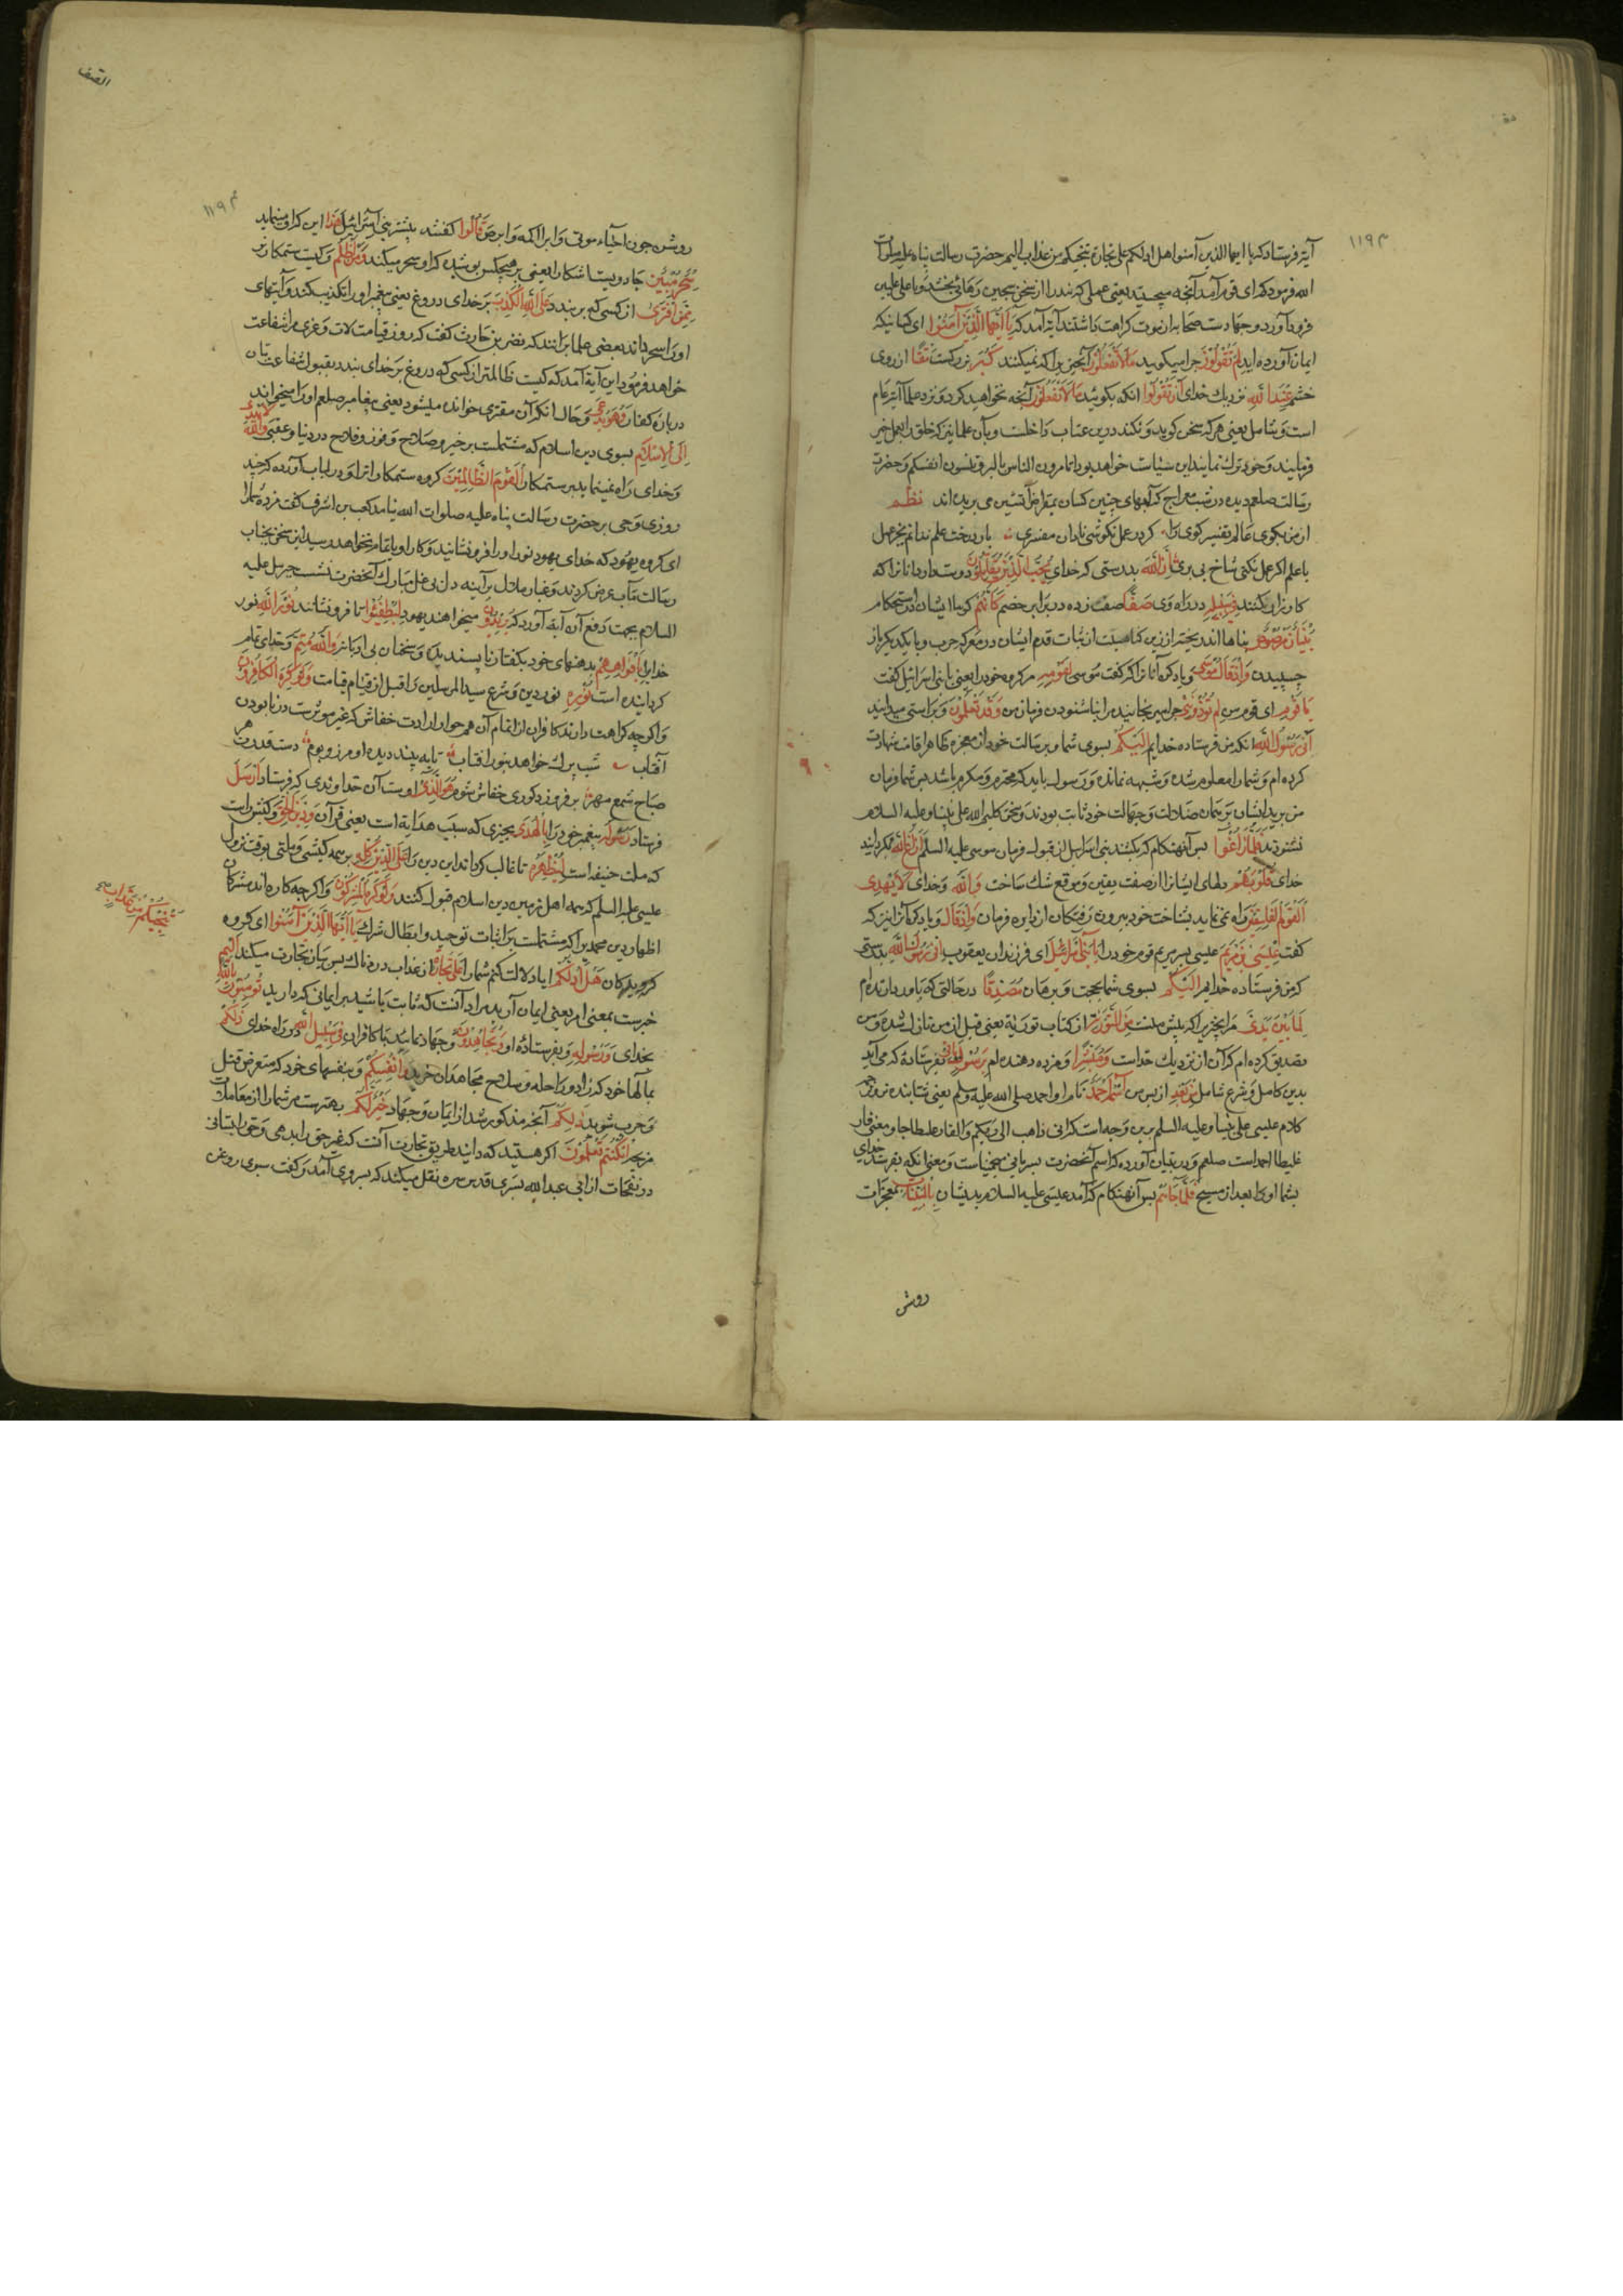 آیة فرستاد که یا ایها الذین آمنوا هل ادلکم علی تجارة تنجیکم من عذاب الیم حضرت رسالت پناه علیه صلوات
الله فرمود که ای قوم آمد آنچه میجستید یعنی عملی که بنده را از سجن سجین رهائی بخشد و باعلی علیین
فرود آورد و جهادست صحابه از موت کراهت داشتند آیة آمد که یَا اَیُّهَا الَّذِیْنَ آمَنُوْا ای کسانیکه
ایمان آورده اید لِمَ تَقُوْلُوْنَ چرا میکویید مَا لَا تَفْعَلُوْنَ آنچیزی را که نمیکنند کَبُرَ بزرکست مَقْتًا از روی
خشم عِنْدَ اللّٰهِ نزدیك خدای اَنْ تَقُوْلُوْا انکه بکوئید مَا لَا تَفْعَلُوْنَ آنچه نخواهید کرد و نزد علما آیة عام
است و شامل یعنی هر که سخن کوید و نکند درین عتاب داخلست و بآن علما نیز که خلق را بعمل خیر
فرمایند و خود ترك نمایند این سیاست خواهد بود اتامرون الناس بالبر و تنسون انفسکم و حضرت
رسالت صلعم دیده در شب معراج که لبهای چنین کسان بمقراض آتشین می بریده اند نظم
از من بکوی عالم تفسیر کوی را کر در عمل نکوشی نادان مفسری بار درخت علم ندانم بجز عمل
با علم اکر عمل نکنی شاخ بی بری اِنَّ اللّٰهَ بدرستی که خدای یُحِبُّ الَّذِیْنَ یُقَاتِلُوْنَ دوست دارد آنانرا که
کارزار میکنند فِیْ سَبِیْلِهِ در راه وی صَفًّا صف زده در برابر خصم کَاَنَّهُمْ کویا ایشان در استحکام
بُنْیَانٌ مَرْصُوْصٌ بناها اند ریخته از رزین کنایتست از ثبات قدم ایشان در معرکه حرب و با یکدیکر باز
چسپیدن وَاِذْ قَالَ مُوْسَی و یاد کن آنانرا که کفت موسی لِقَوْمِهِ مر کروه خود را یعنی بابنی اسرائیل کفت
یَا قَوْمِ ای قوم من لِمَ تُؤْذُوْنَنِیْ چرا میرنجانید مرا بناشنودن فرمان من وَقَدْ تَعْلَمُوْنَ و براستی میدانید
اَنِّیْ رَسُوْلُ اللّٰهِ انکه من فرستاده خدایم اِلَیْکُمْ بسوی شما و بر رسالت خود از معجزه ظاهر اقامت شهادت
کرده ام و شما را معلوم شده و شبهه نمانده و رسول باید که محترم و مکرم باشد پس شما فرمان
من برید ایشان بر همان ضلالت و جهالت خود ثابت بودند و سخن کلیم الله علی نبینا و علیه السلام
نشنودند فَلَمَّا زَاغُوْا پس آنهنکام که بکشتند بنی اسرایل از قبول فرمان موسی علیه السلم اَزَاغَ اللّٰهُ بکردانید
خدای قُلُوْبَهُمْ دلهای ایشانرا از صفت یقین و موقع شك ساخت وَاللّٰهُ و خدای لَا یَهْدِی
الْقَوْمَ الْفٰسِقِیْنَ راه نمی نماید بشناخت خود بیرون رفتکان از دایره فرمان وَاِذْ قَالَ و یاد کن آنرا نیز که
کفت عِیْسَی ابْنُ مَرْیَمَ عیسی پسر مریم قوم خود را یَا بَنِیْ اِسْرَائِیْلَ ای فرزندان یعقوب اِنِّیْ رَسُوْلُ اللّٰهِ بدرستی
که من فرستاده خدایم اِلَیْکُمْ بسوی شما بحجت و برهان مُصَدِّقًا در حالتی که باور دارنده ام
لِمَا بَیْنَ یَدَیَّ مر آنچیز را که پیش منست مِنَ التَّوْرٰیةِ از کتاب توریة یعنی قبل از من نازل شده و من
تصدیق کرده ام که آن از نزدیك خداست وَمُبَشِّرًا و مژده دهنده ام بِرَسُوْلٍ یَأْتِیْ بفرستاده که می آید
بدین کامل و شرع شامل مِنْ بَعْدِی از پس من اسْمُهُ اَحْمَدُ نام او احمد صلی الله علیه وسلم یعنی ستاینده تر و ترجمه
کلام عیسی علی نبینا و علیه السلم برین وجه است که انی ذاهب الی ربکم و الفارقلیطا جاء و معنی فار
قلیطا احمد است صلعم و در تبیان آورده که اسم آنحضرت بسریانی مجنیاست و معنی انکه بفرستد خدای
بشما او را بعد از مسیح فَلَمَّا جَاءَهُمْ پس آنهنکام که آمد عیسی علیه السلام بدیشان بِالْبَیِّنَاتِ بمعجزات
روشن
الصف
روشن چون احیاء موتی و ابرا اکمه و ابرص قَالُوْا کفتند بیشتر بنی اسرائیل هٰذَا این که او مینماید
سِحْرٌ مُبِیْنٌ جادوییست آشکارا یعنی بر هیچکس پوشیده که او سحر میکند وَمَنْ اَظْلَمُ و کیست ستمکارتر
مِمَّنِ افْتَرٰی از کسی که بر بندد عَلَی اللّٰهِ الْکَذِبَ بر خدای دروغ یعنی پیغمبر او را تکذیب کند و آیتهای
او را سحر داند بعضی علما بر انند که نضر بن حارث کفت که روز قیامت لات و عزی مرا شفاعت
خواهد فرمود این آیة آمد که کیست ظالمتر از کسی که دروغ بر خدای بندد بقبول شفاعت بتان
در باره کفار وَهُوَ یُدْعٰی و حال انکه آن مفتری خوانده میشود یعنی پیغامبر صلعم او را میخواند
اِلَی الْاِسْلَامِ بسوی دین اسلام که مشتملست بر خیر و صلاح و فوز و فلاح در دنیا و عقبی وَاللّٰهُ لَا یَهْدِی
و خدای راه نمینماید بر ستمکار الْقَوْمَ الظَّالِمِیْنَ کروه ستمکارانرا و در لباب آورده که چند
روزی وحی بر حضرت رسالت پناه علیه صلوات الله نیامد کعب بن اشرف کفت مژده شما را
ای کروه یهود که خدای یهود نور او را فرو نشانید و کار او باتمام نخواهد رسید این سخن بجناب
رسالت مآب عرض کردند و غبار ملال بر آینه دل بی غل مبارك آنحضرت نشست جبریل علیه
السلام بجهت دفع آن آیة آورد که یُرِیْدُوْنَ میخواهند یهود لِیُطْفِئُوْا تا فرو نشانند نُوْرَ اللّٰهِ نور
خدایرا بِاَفْوَاهِهِمْ بدهنهای خود بکفتار ناپسندیده و سخنان بی ادبانه وَاللّٰهُ مُتِمُّ و خدای تمام
کرداننده است نُوْرِهِ نور دین و شرع سید المرسلین را قبل از قیام قیامت وَلَوْ کَرِهَ الْکَافِرُوْنَ
و اکر چه کراهت دارند کافران از اتمام آن همچو ارادت خفاش که غیر موثرست در نابودن
آفتاب شب پرك خواهد نبود آفتاب تا به بیند دیده او مرز و بوم دست قدرت هر
صباح شمع مهر بر فروزد کوری خفاش شوم هُوَ الَّذِیْ اوست آن خداوندی که فرستاد اَرْسَلَ
فرستاد رَسُوْلَهُ پیغمبر خود را بِالْهُدٰی بچیزی که سبب هدایة است یعنی قرآن وَدِیْنِ الْحَقِّ و کیش راست
که ملت حنیفه است لِیُظْهِرَهُ تا غالب کرداند این دین را عَلَی الدِّیْنِ کُلِّهِ بر همه کیشی و ملتی بوقت نزول
عیسی علیه السلم که همه اهل زمین دین اسلام قبول کنند وَلَوْ کَرِهَ الْمُشْرِکُوْنَ و اکر چه کاره اند مشرکان
اظهار دین محمدی را که مشتملست بر اثبات توحید و ابطال شرك یَا اَیُّهَا الَّذِیْنَ آمَنُوْا ای کروه
کرویدکان هَلْ اَدُلُّکُمْ ایا دلالت کنم شما را عَلٰی تِجَارَةٍ از عذاب دردناك پس بیان تجارت میکند اَلِیْمٍ
تُنْجِیْکُمْ مِنْ عَذَابٍ
خبرست بمعنی امر یعنی ایمان آرید مراد آنست که ثابت باشید بر ایمانی که دارید تُؤْمِنُوْنَ بِاللّٰهِ
بخدای وَرَسُوْلِهِ و بفرستاده او وَتُجَاهِدُوْنَ و جهاد نمایید با کافران فِیْ سَبِیْلِ اللّٰهِ در راه خدای
بمالها خود که زاد و راحله و سلاح مجاهدان خرید وَاَنْفُسِکُمْ و بنفسهای خود که متعرض قتل
و حرب شوید ذٰلِکُمْ آنچه مذکور شد از ایمان و جهاد خَیْرٌ لَکُمْ بهترست مر شما را از معاملات
اِنْ کُنْتُمْ تَعْلَمُوْنَ اکر هستید که دانید طریق تجارت آنست که غیر حق را بدهی و حق را بستانی
در نفحات از ابی عبد الله بسری قدس سره نقل میکند که پسر وی آمد و کفت سبوی روغن